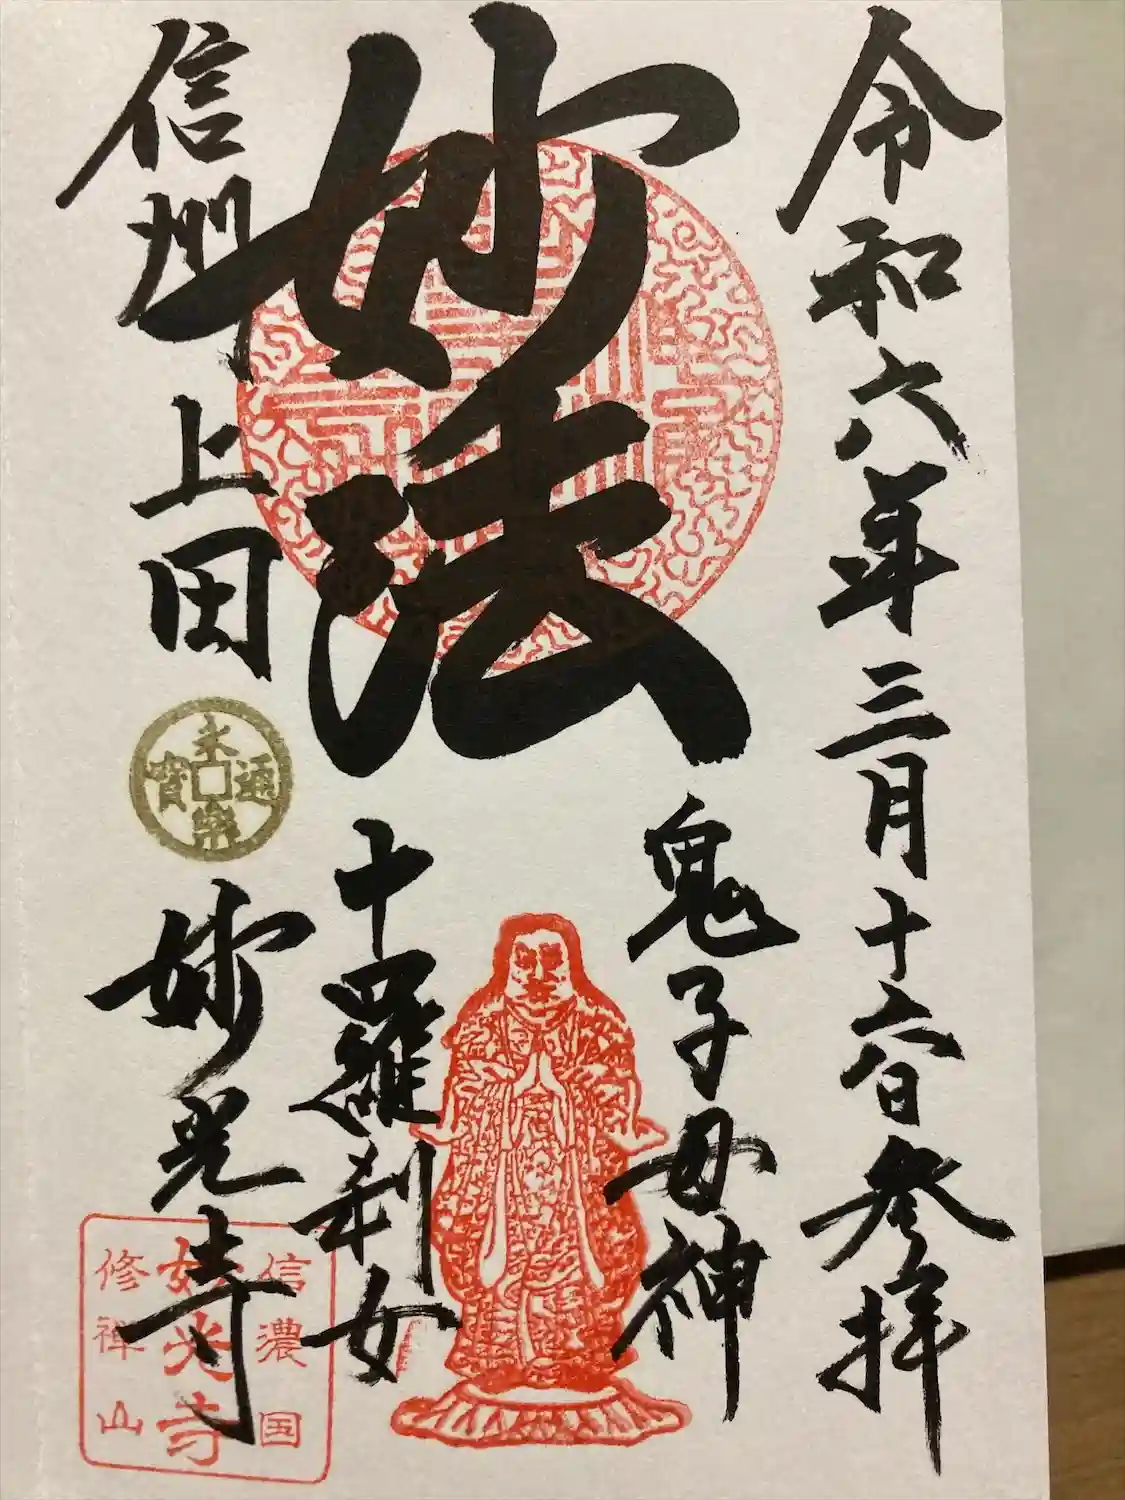 令和六年三月十六日参拝
妙法
鬼子母神
十羅刹女
信州上田
永樂通寳
妙光寺
信濃国
妙光寺
修禅山